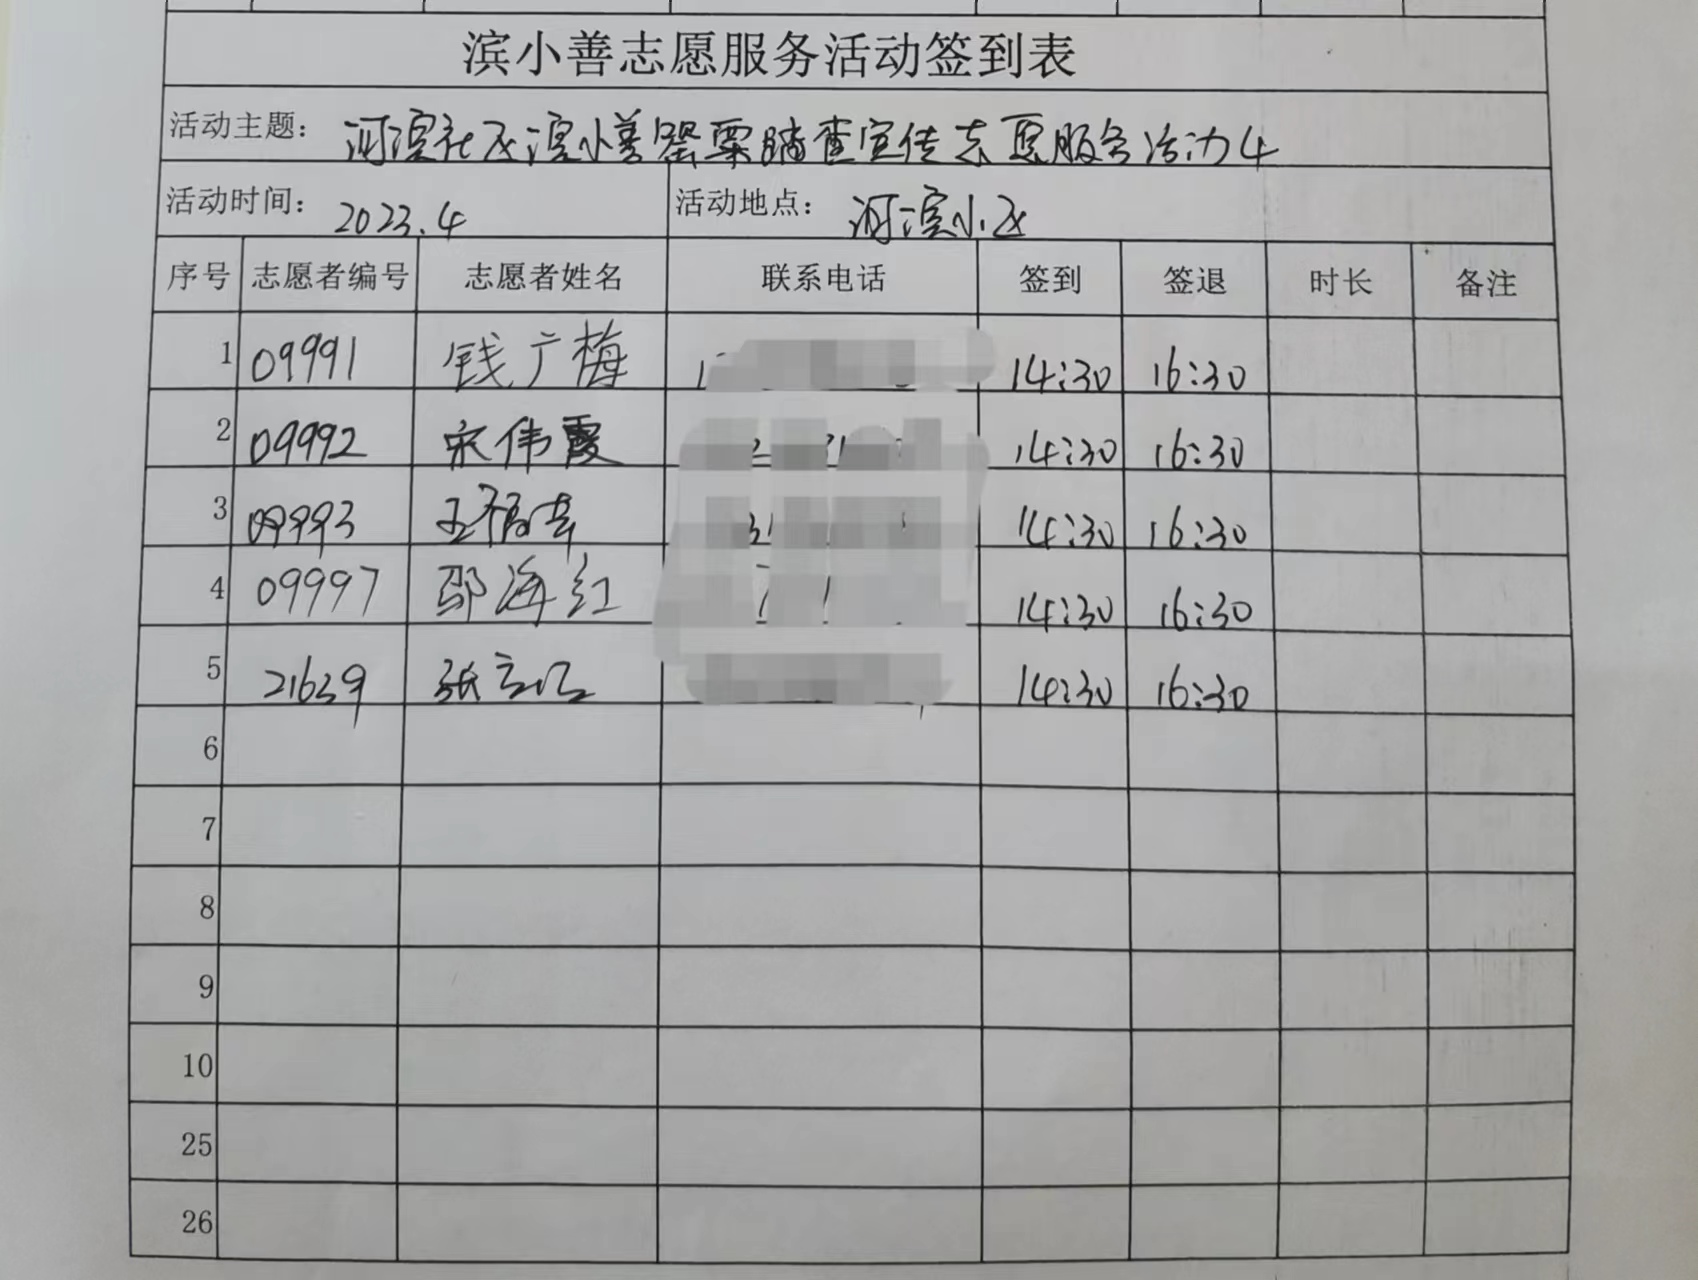 滨小善志愿服务活动签到表
活动主题： 河滨社区滨小善罂粟踏查宣传志愿服务活动4
活动时间： 2023.4 活动地点： 河滨小区
序号 志愿者编号 志愿者姓名 联系电话 签到 签退 时长 备注
1 09991 钱广梅 14:30 16:30
2 09992 宋伟霞 14:30 16:30
3 09993 王福幸 14:30 16:30
4 09997 邵海红 14:30 16:30
5 21639 张 14:30 16:30
6
7
8
9
10
25
26